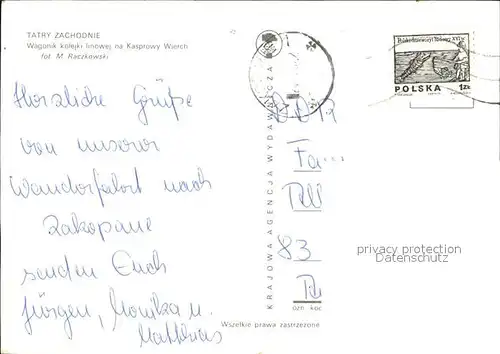 TATRY ZACHODNIE
Wagonik kolejki linowej na Kasprowy Wierch
fot. M. Raczkowski
Herzliche Grüße
von unserer
Wanderfahrt nach
Zakopane
senden Euch
Jürgen, Monika u.
Matthias
KRAJOWA AGENCJA WYDAWNICZA
POLSKA 1ZŁ
DDR
Fa
83
privacy protection
Datenschutz
Wszelkie prawa zastrzeżone